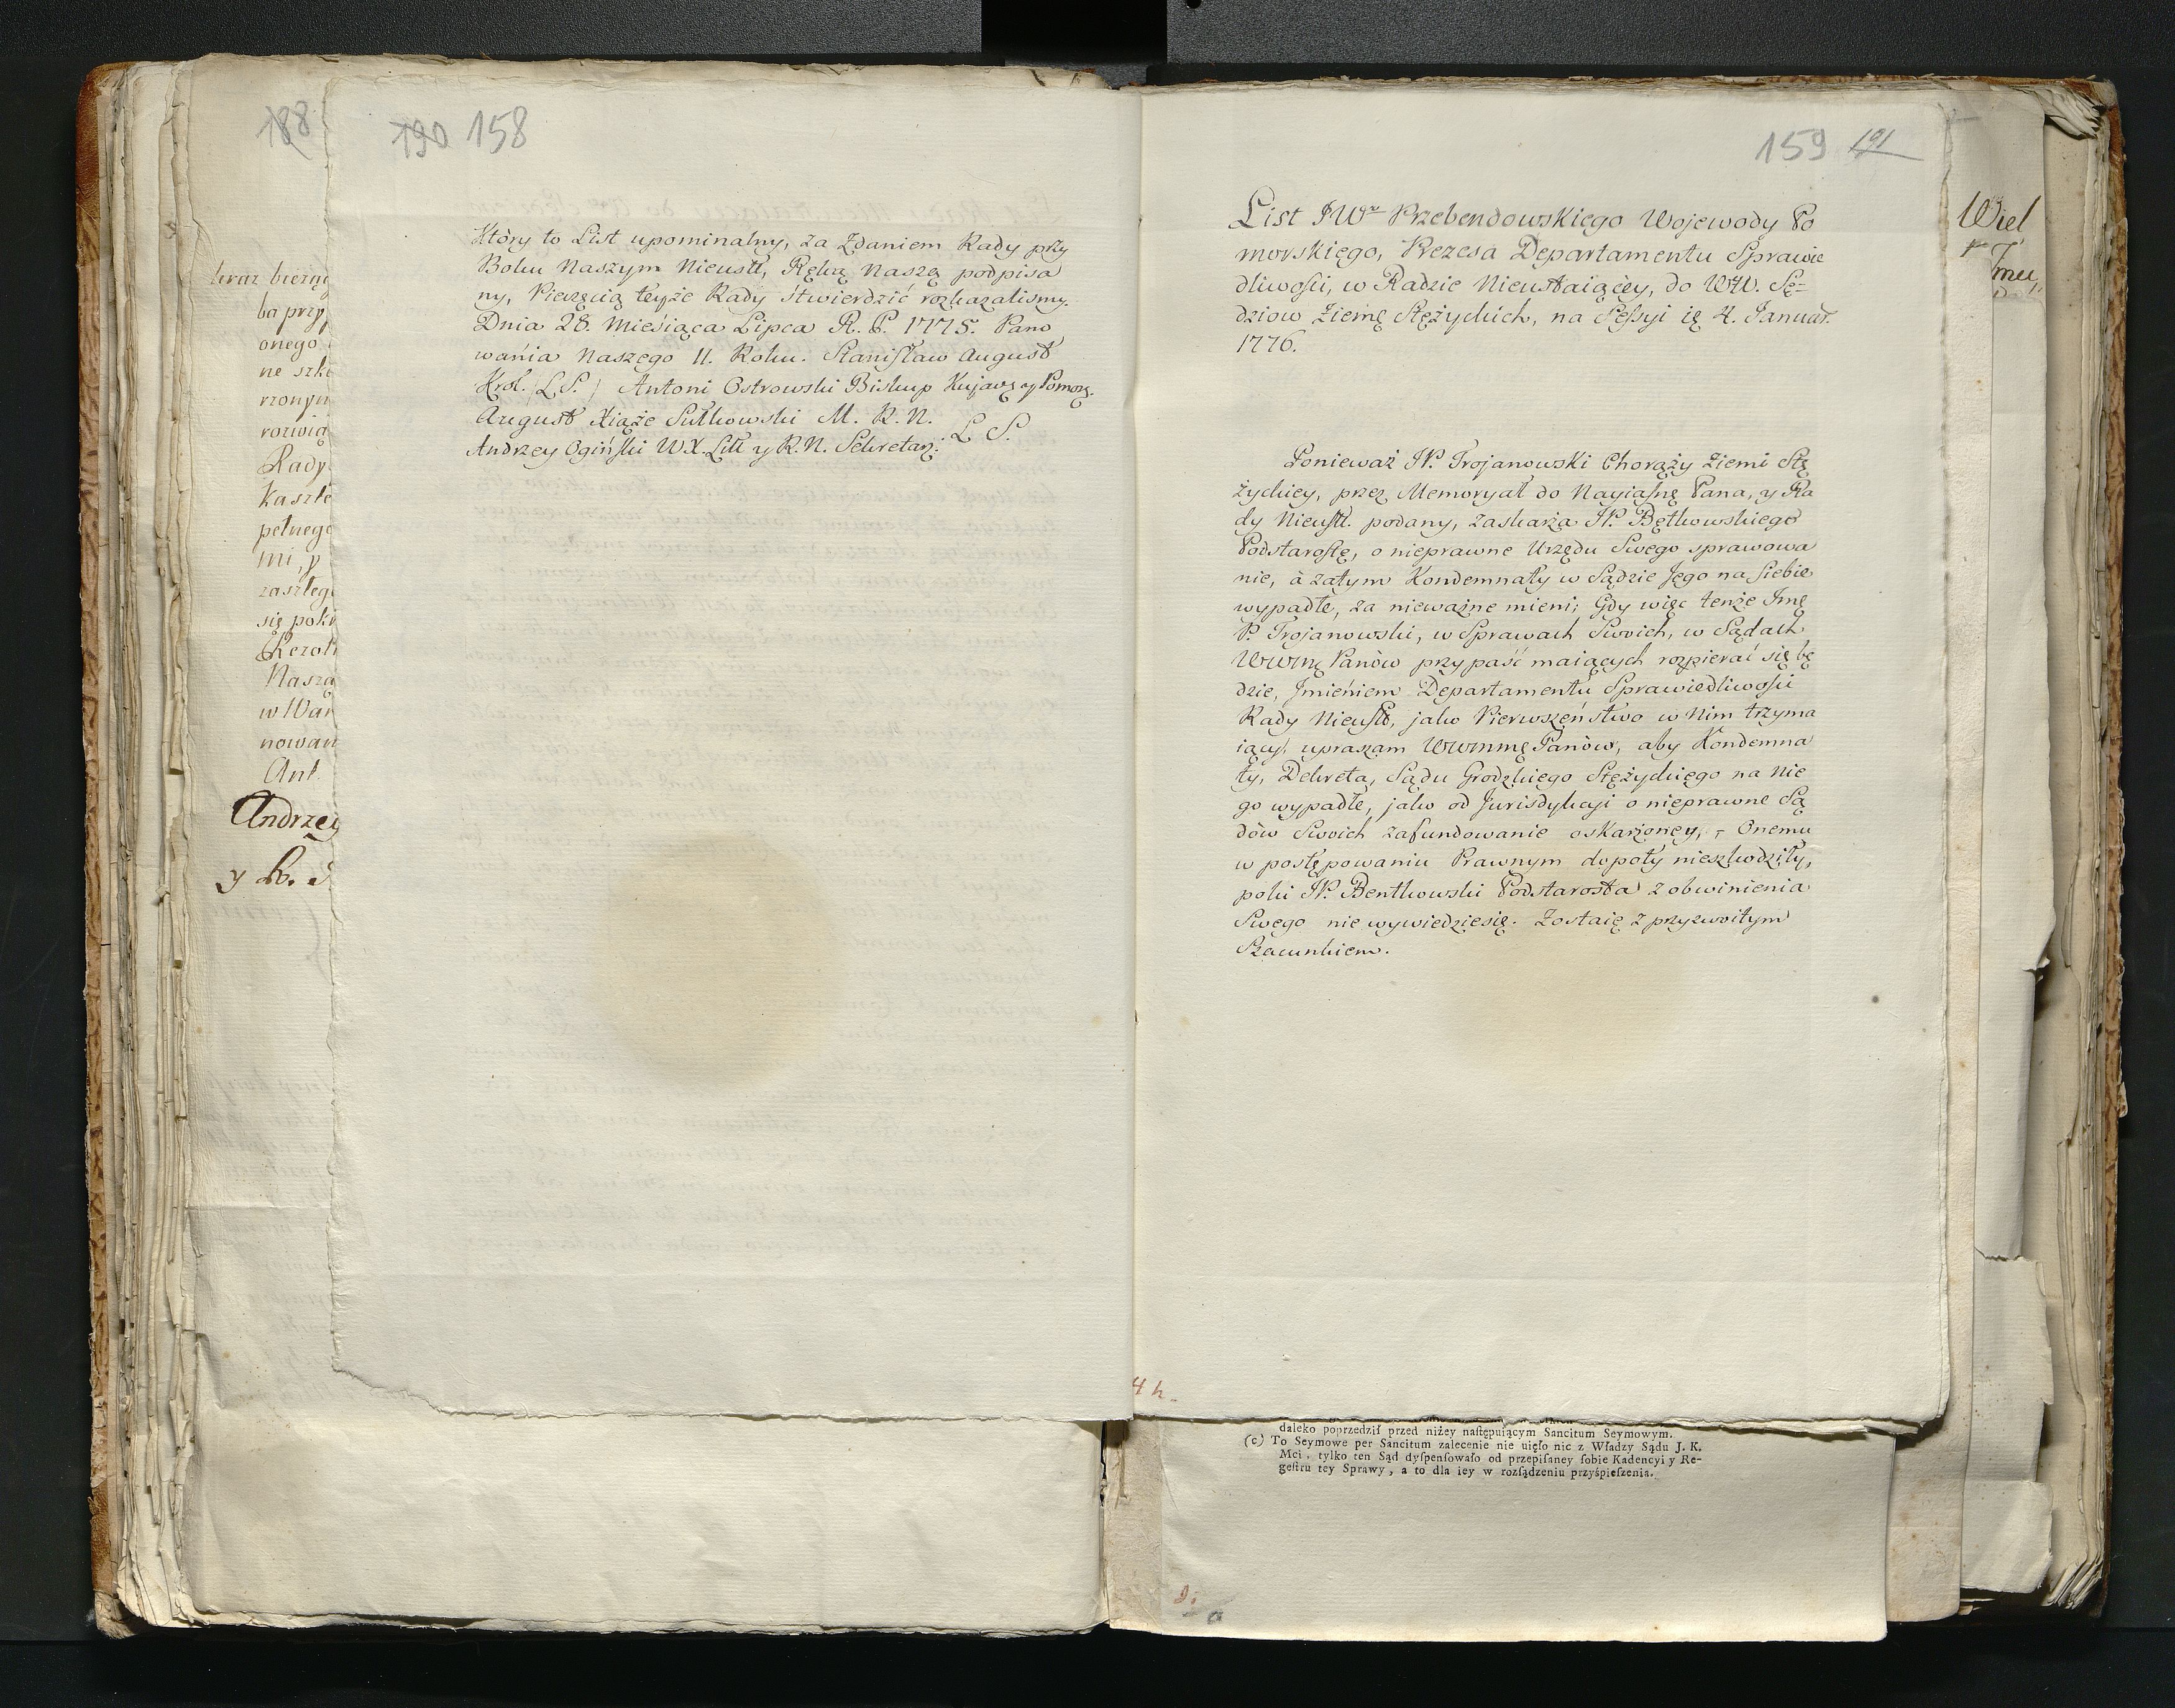 188
teraz bieżąc
ba przy
onego
ne szko
rzonym
rozwią
Rady
Kaszte
pełnego
mi, y
zaszłeg
się poka
Rezol
Naszą
w War
nowan
Ant.
Andrzey
y
190 158
Który to List upominalny, za Zdaniem Rady przy
Boku Naszym Nieustł, Ręką Naszą podpisa
ny, Pieczęcią teyże Rady stwierdzić rozkazalismy.
Dnia 28. Miesiąca Lipca R. P. 1775. Pano
wania Naszego 11. Roku. Stanisław August
Krol. (L.S.) Antoni Ostrowski Biskup Kujaws y Pomors.
August Xiąże Sułkowski M. R. N.
Andrzey Ogiński W.X. Litt y R.N. Sekretarz. L S.
159 191
List JWo Przebendowskiego Wojewody Po
morskiego, Prezesa Departamentu Sprawie
dliwości, w Radzie Nieustaiącey, do WW. Sę=
dziow Ziemę Stężyckich, na Sessyi ię 4. Januar.
1776.
Ponieważ JP. Trojanowski Chorąży Ziemi Stę
życkiey, przez Memoryał do Nayiasnę Pana, y Ra
dy Nieustł. podany, zaskarża JP. Bętkowskiego
Podstarostę, o nieprawne Urzędu Swego sprawowa
nie, à zatym Kondemnaty w Sądzie Jego na Siebie
wypadłe, za nieważne mieni; Gdy więc tenże Jmę
P. Trojanowski, w Sprawach Swoich, w Sądach
WWmę Panów przypaść maiących rozpierać się bę
dzie, Jmieniem Departamentu Sprawiedliwości
Rady Nieustł, jako Pierwszeństwo w Nim trzyma
iący, upraszam WWmmę Panów, aby Kondemna
ty, Dekreta, Sądu Grodzkiego Stężyckiego na Nie
go wypadłe, jako od Jurisdykcyi o nieprawne Są
dów Swoich zafundowanie oskarżoney, Onemu
w postępowaniu Prawnym dopoty nieszkodziły,
poki JP. Bentkowski Podstarosta z obwinienia
Swego nie wywiedziesię. Zostaię z przyzwoitym
Szacunkiem.
Wiel
Jmu
4 h.
daleko poprzedził przed niżey naſtępuiącym Sancitum Seymowym.
(c) To Seymowe per Sancitum zalecenie nie uięło nic z Władzy Sądu J. K.
Mci, tylko ten Sąd dyſpenſowało od przepiſaney ſobie Kadencyi y Re-
geſtru tey Sprawy, a to dla iey w rozſądzeniu przyśpieſzenia.
a